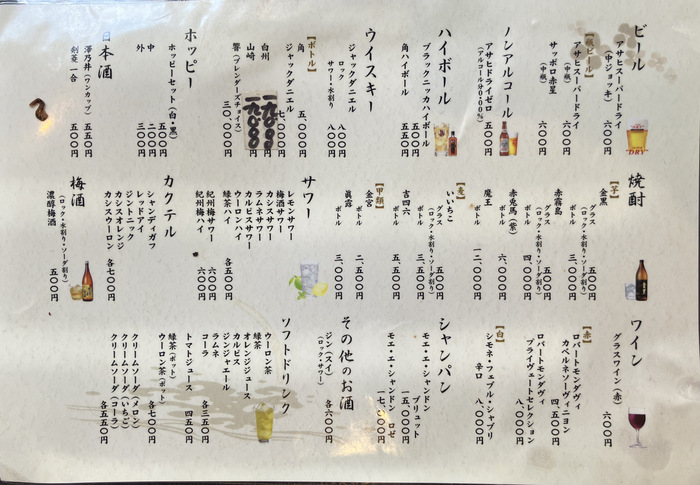 ビール
アサヒスーパードライ
(中ジョッキ) 六〇〇円
【瓶ビール】
アサヒスーパードライ
(中瓶) 六〇〇円
サッポロ赤星
(中瓶) 六〇〇円
ノンアルコール
アサヒドライゼロ 五〇〇円
(アルコール分0.00%)
ハイボール
ブラックニッカハイボール 五〇〇円
角ハイボール 五五〇円
ウイスキー
ジャックダニエル
ロック 八〇〇円
サワー・水割り 八〇〇円
【ボトル】
角 五、〇〇〇円
ジャックダニエル 七、〇〇〇円
白州
山崎
響(ブレンダーズチョイス) 三〇、〇〇〇円
ホッピー
ホッピーセット(白・黒) 五五〇円
中 二〇〇円
外 三〇〇円
日本酒
澤乃井(ワンカップ) 五五〇円
剣菱一合 五〇〇円
焼酎
【芋】
金黒
グラス 五〇〇円
(ロック・水割り・ソーダ割り)
ボトル 三、〇〇〇円
赤霧島
グラス 五〇〇円
(ロック・水割り・ソーダ割り)
ボトル 四、〇〇〇円
赤兎馬(紫)
ボトル 六、〇〇〇円
魔王
ボトル 一二、〇〇〇円
【麦】
いいちこ
グラス 五〇〇円
(ロック・水割り・ソーダ割り)
ボトル 三、五〇〇円
吉四六
ボトル 五、五〇〇円
【甲類】
金宮
ボトル 二、五〇〇円
眞露
ボトル 三、〇〇〇円
サワー
レモンサワー
梅酒サワー
カシスサワー
ラムネサワー
カルピスサワー
ウーロンハイ
緑茶ハイ 各五〇〇円
紀州梅サワー 六〇〇円
紀州梅ハイ 六〇〇円
カクテル
シャンディガフ
レッドアイ
ジントニック
カシスオレンジ
カシスウーロン 各七〇〇円
梅酒
(ロック・水割り・ソーダ割り)
濃醇梅酒 五五〇円
ワイン
グラスワイン(赤) 六〇〇円
【赤】
ロバートモンダヴィ
カベルネソーヴィニヨン 四、五〇〇円
ロバートモンダヴィ
プライヴェートセレクション 八、〇〇〇円
【白】
シモネ・フェブル・シャブリ
辛口 八、〇〇〇円
シャンパン
モエ・エ・シャンドン
ブリュット 一五、〇〇〇円
モエ・エ・シャンドン ロゼ 一七、〇〇〇円
その他のお酒
ジン(スイ) 各六〇〇円
(ロック・サワー)
ソフトドリンク
ウーロン茶
緑茶
オレンジジュース
カルピス
ジンジャエール
ラムネ
コーラ 各三五〇円
トマトジュース 四五〇円
緑茶(ポット)
ウーロン茶(ポット) 各七〇〇円
クリームソーダ(メロン)
クリームソーダ(いちご)
クリームソーダ(コーラ) 各五五〇円